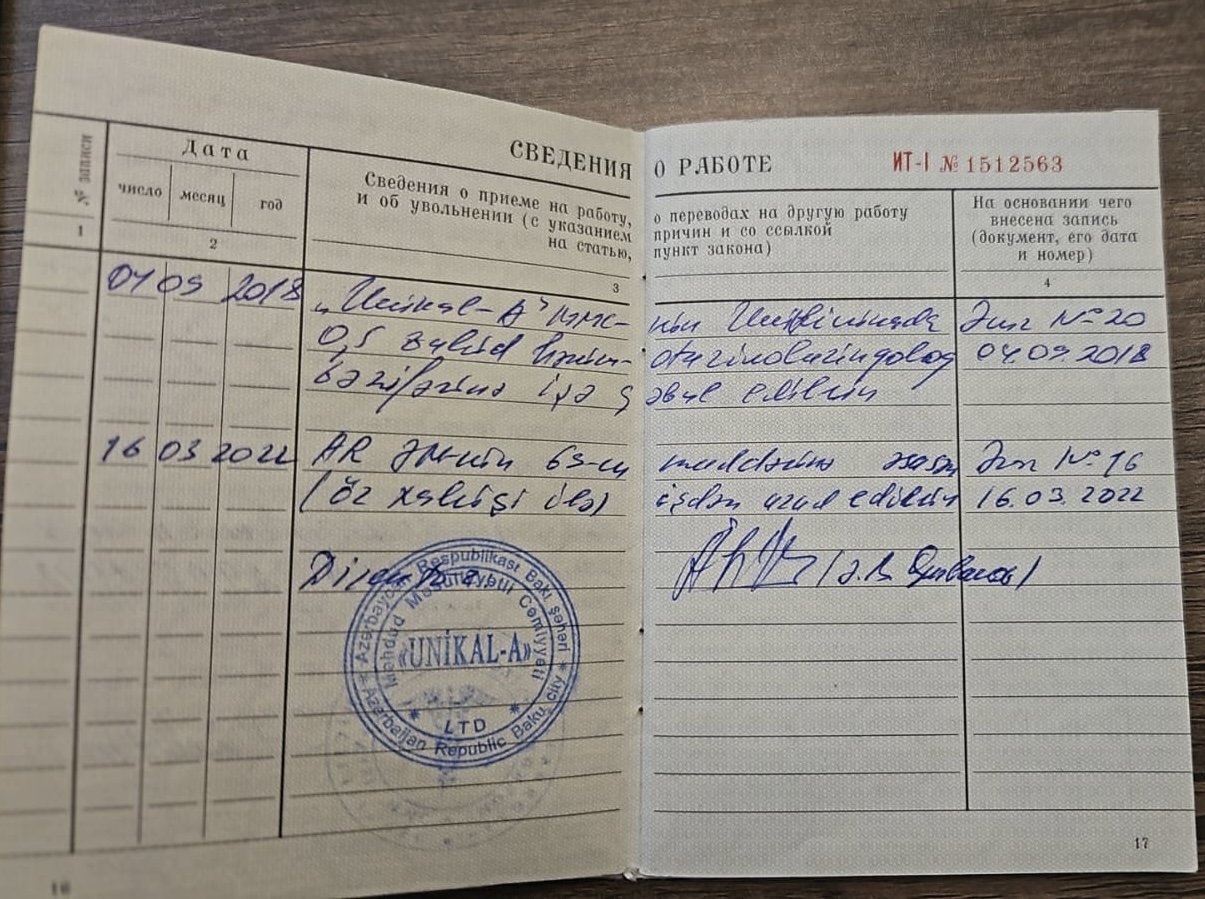 СВЕДЕНИЯ О РАБОТЕ ИТ-I № 1512563
№ записи
Дата
число месяц год
Сведения о приеме на работу,
и об увольнении (с указанием
на статью,
о переводах на другую работу
причин и со ссылкой
пункт закона)
На основании чего
внесена запись
(документ, его дата
и номер)
1 2 3 4
04 09 2018 "Unikal-A" MMC-nin Əmr № 20
0,5 otorinolarinqoloq 04.09.2018
vəzifəsinə işə qəbul edilsin
16 03 2022 AR ƏM-nin 69-cu maddəsinə əsasən Əmr № 16
(öz xahişi ilə) işdən azad edilsin 16.03.2022
Direktor
Azərbaycan Respublikası Bakı şəhəri
Məhdud Məsuliyyətli Cəmiyyəti
«UNİKAL-A»
LTD
Azerbaijan Republic Baku city
16
17